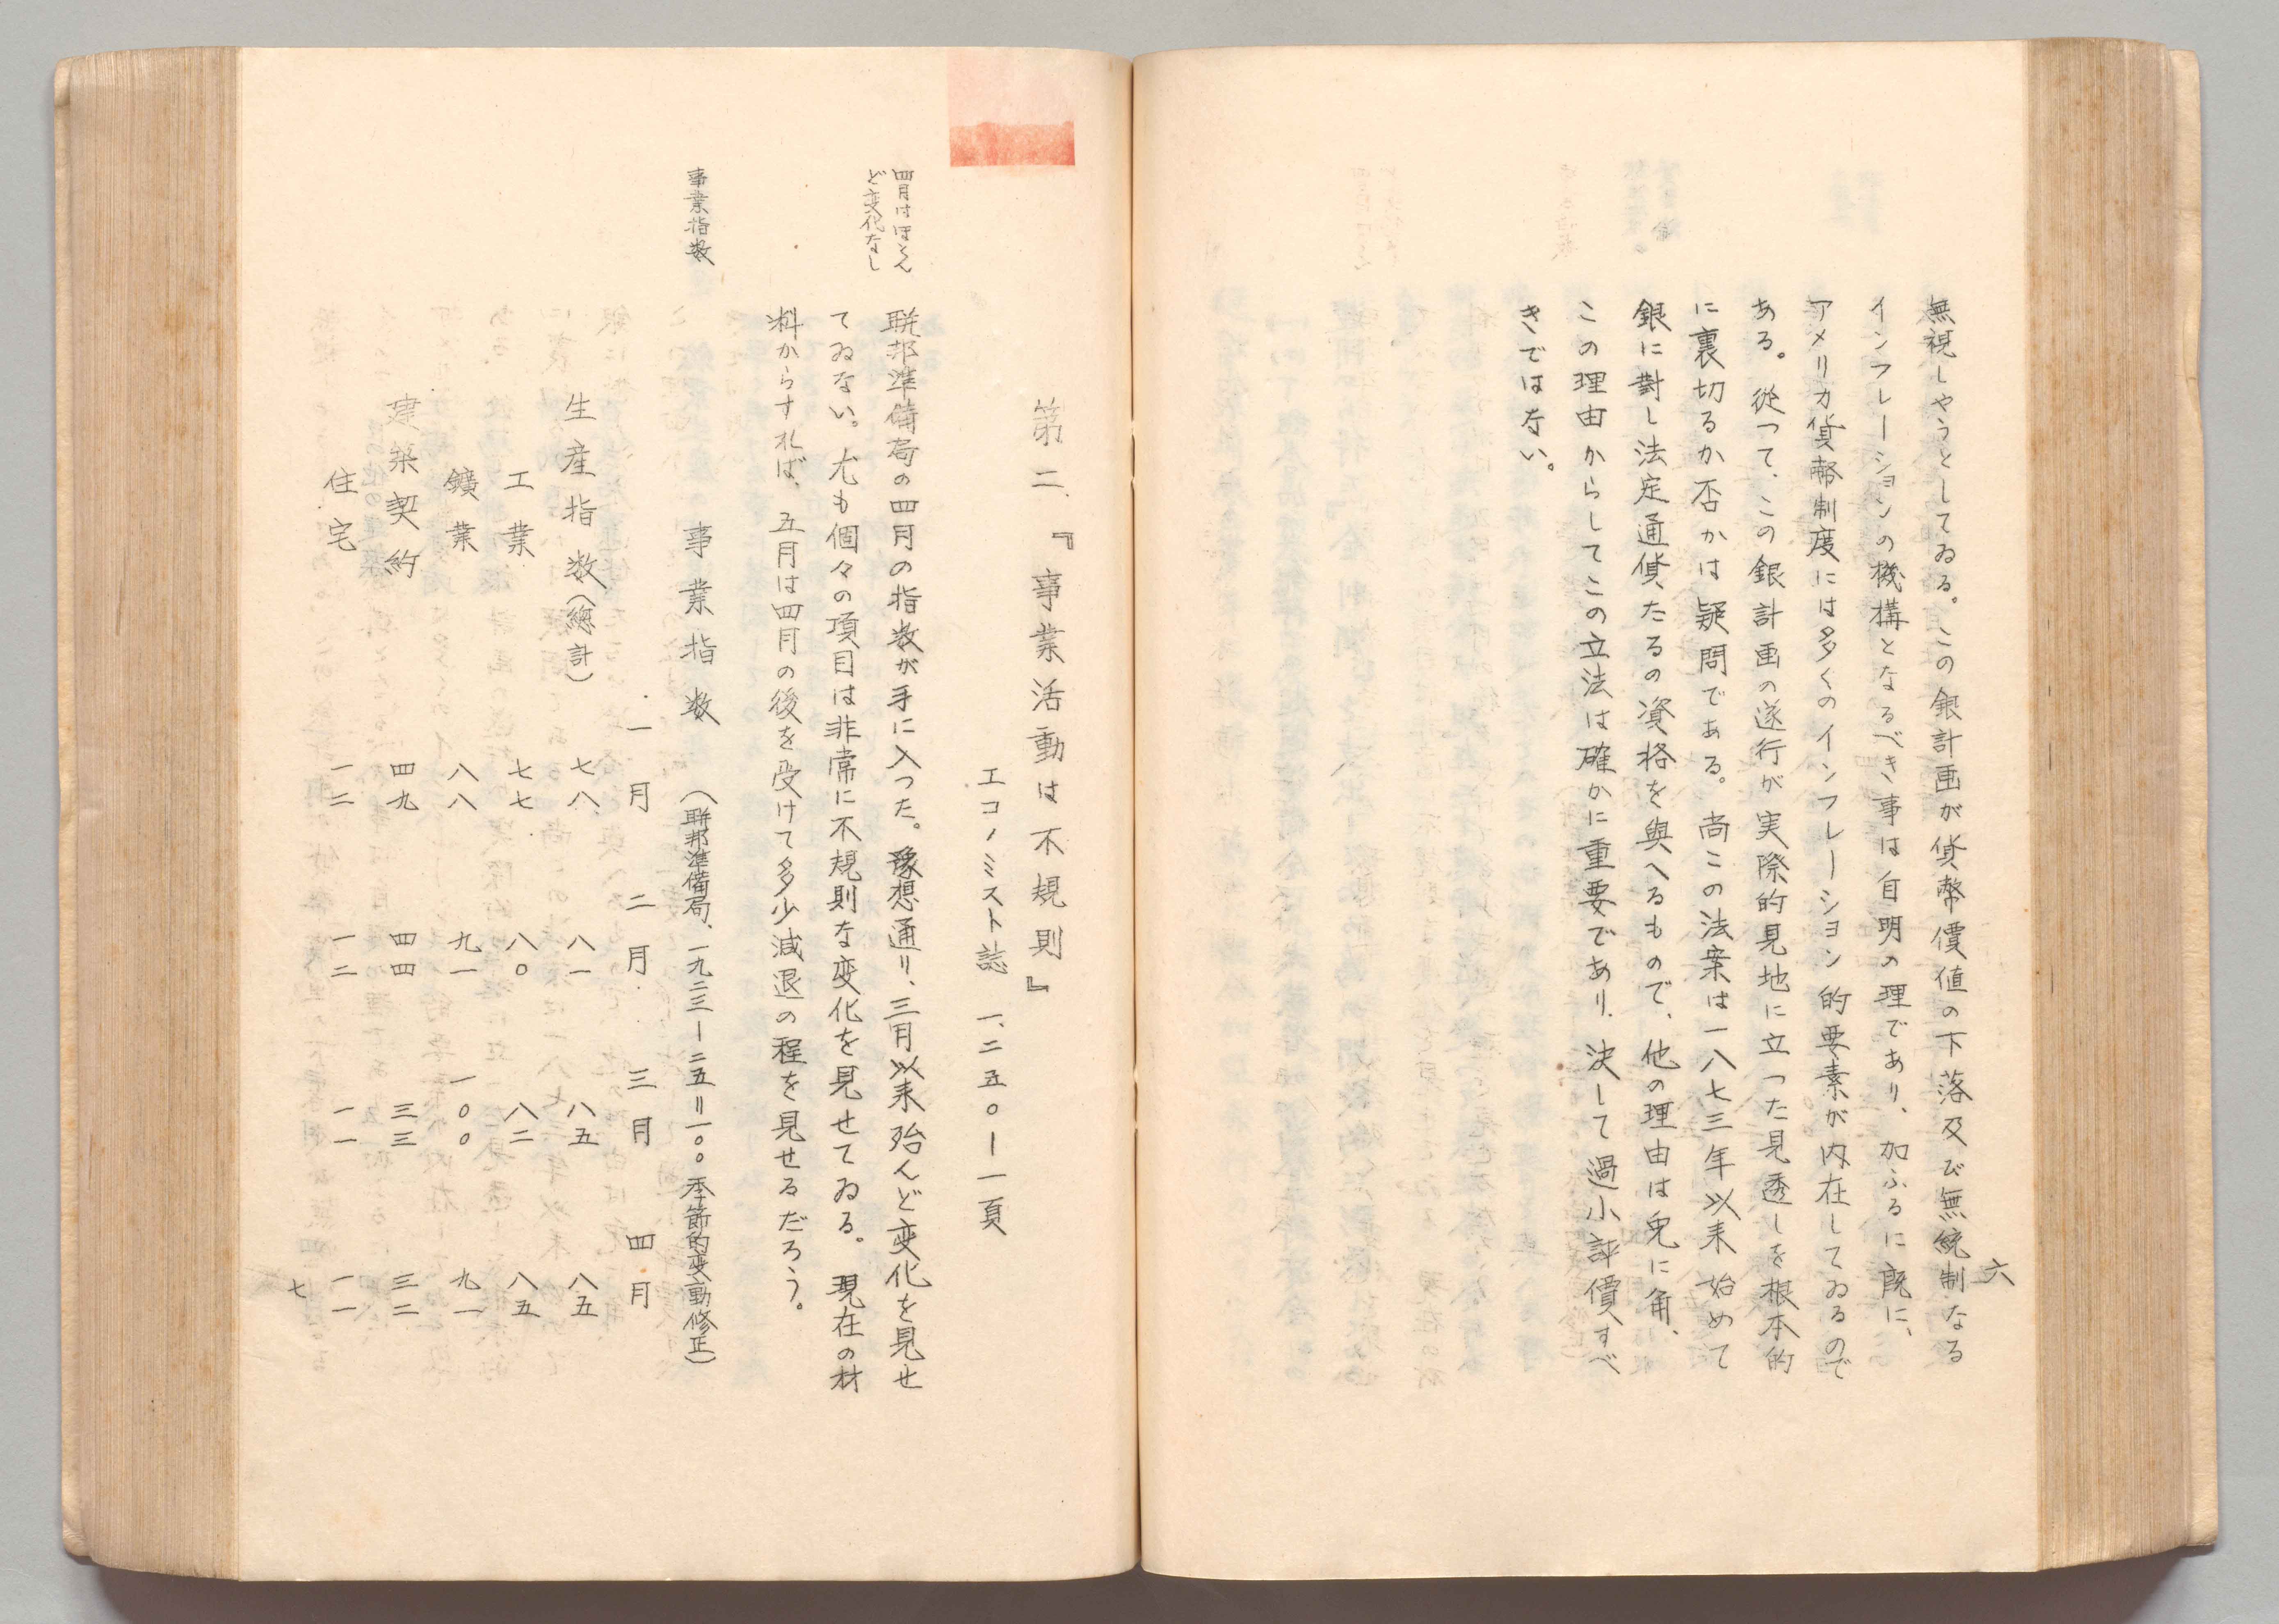 六
無視しやうとしてゐる。この銀計画が貨幣價値の下落及び無統制なる
インフレーションの機構となるべき事は自明の理であり、加ふるに既に、
アメリカ貨幣制度には多くのインフレーション的要素が内在してゐるので
ある。従って、この銀計画の遂行が実際的見地に立った見透しを根本的
に裏切るか否かは疑問である。尚この法案は一八七三年以来始めて
銀に對し法定通貨たるの資格を與へるもので、他の理由は兎に角、
この理由からしてこの立法は確かに重要であり、決して過小評價すべ
きではない。
第二、『事業活動は不規則』
エコノミスト誌 一、二五〇ー一頁
四月はほとん
ど変化なし
聯邦準備局の四月の指数が手に入つた。豫想通り、三月以来殆んど変化を見せ
てゐない。尤も個々の項目は非常に不規則な変化を見せてゐる。現在の材
料からすれば、五月は四月の後を受けて多少減退の程を見せるだろう。
事業指数
事業指数 (聯邦準備局、一九二三ー二五=一〇〇季節的変動修正)
一月 二月 三月 四月
生産指数(總計) 七八 八一 八五 八五
工業 七七 八〇 八二 八五
鑛業 八八 九一 一〇〇 九一
建築契約 四九 四四 三三 三二
住宅 一二 一二 一一 一一
七